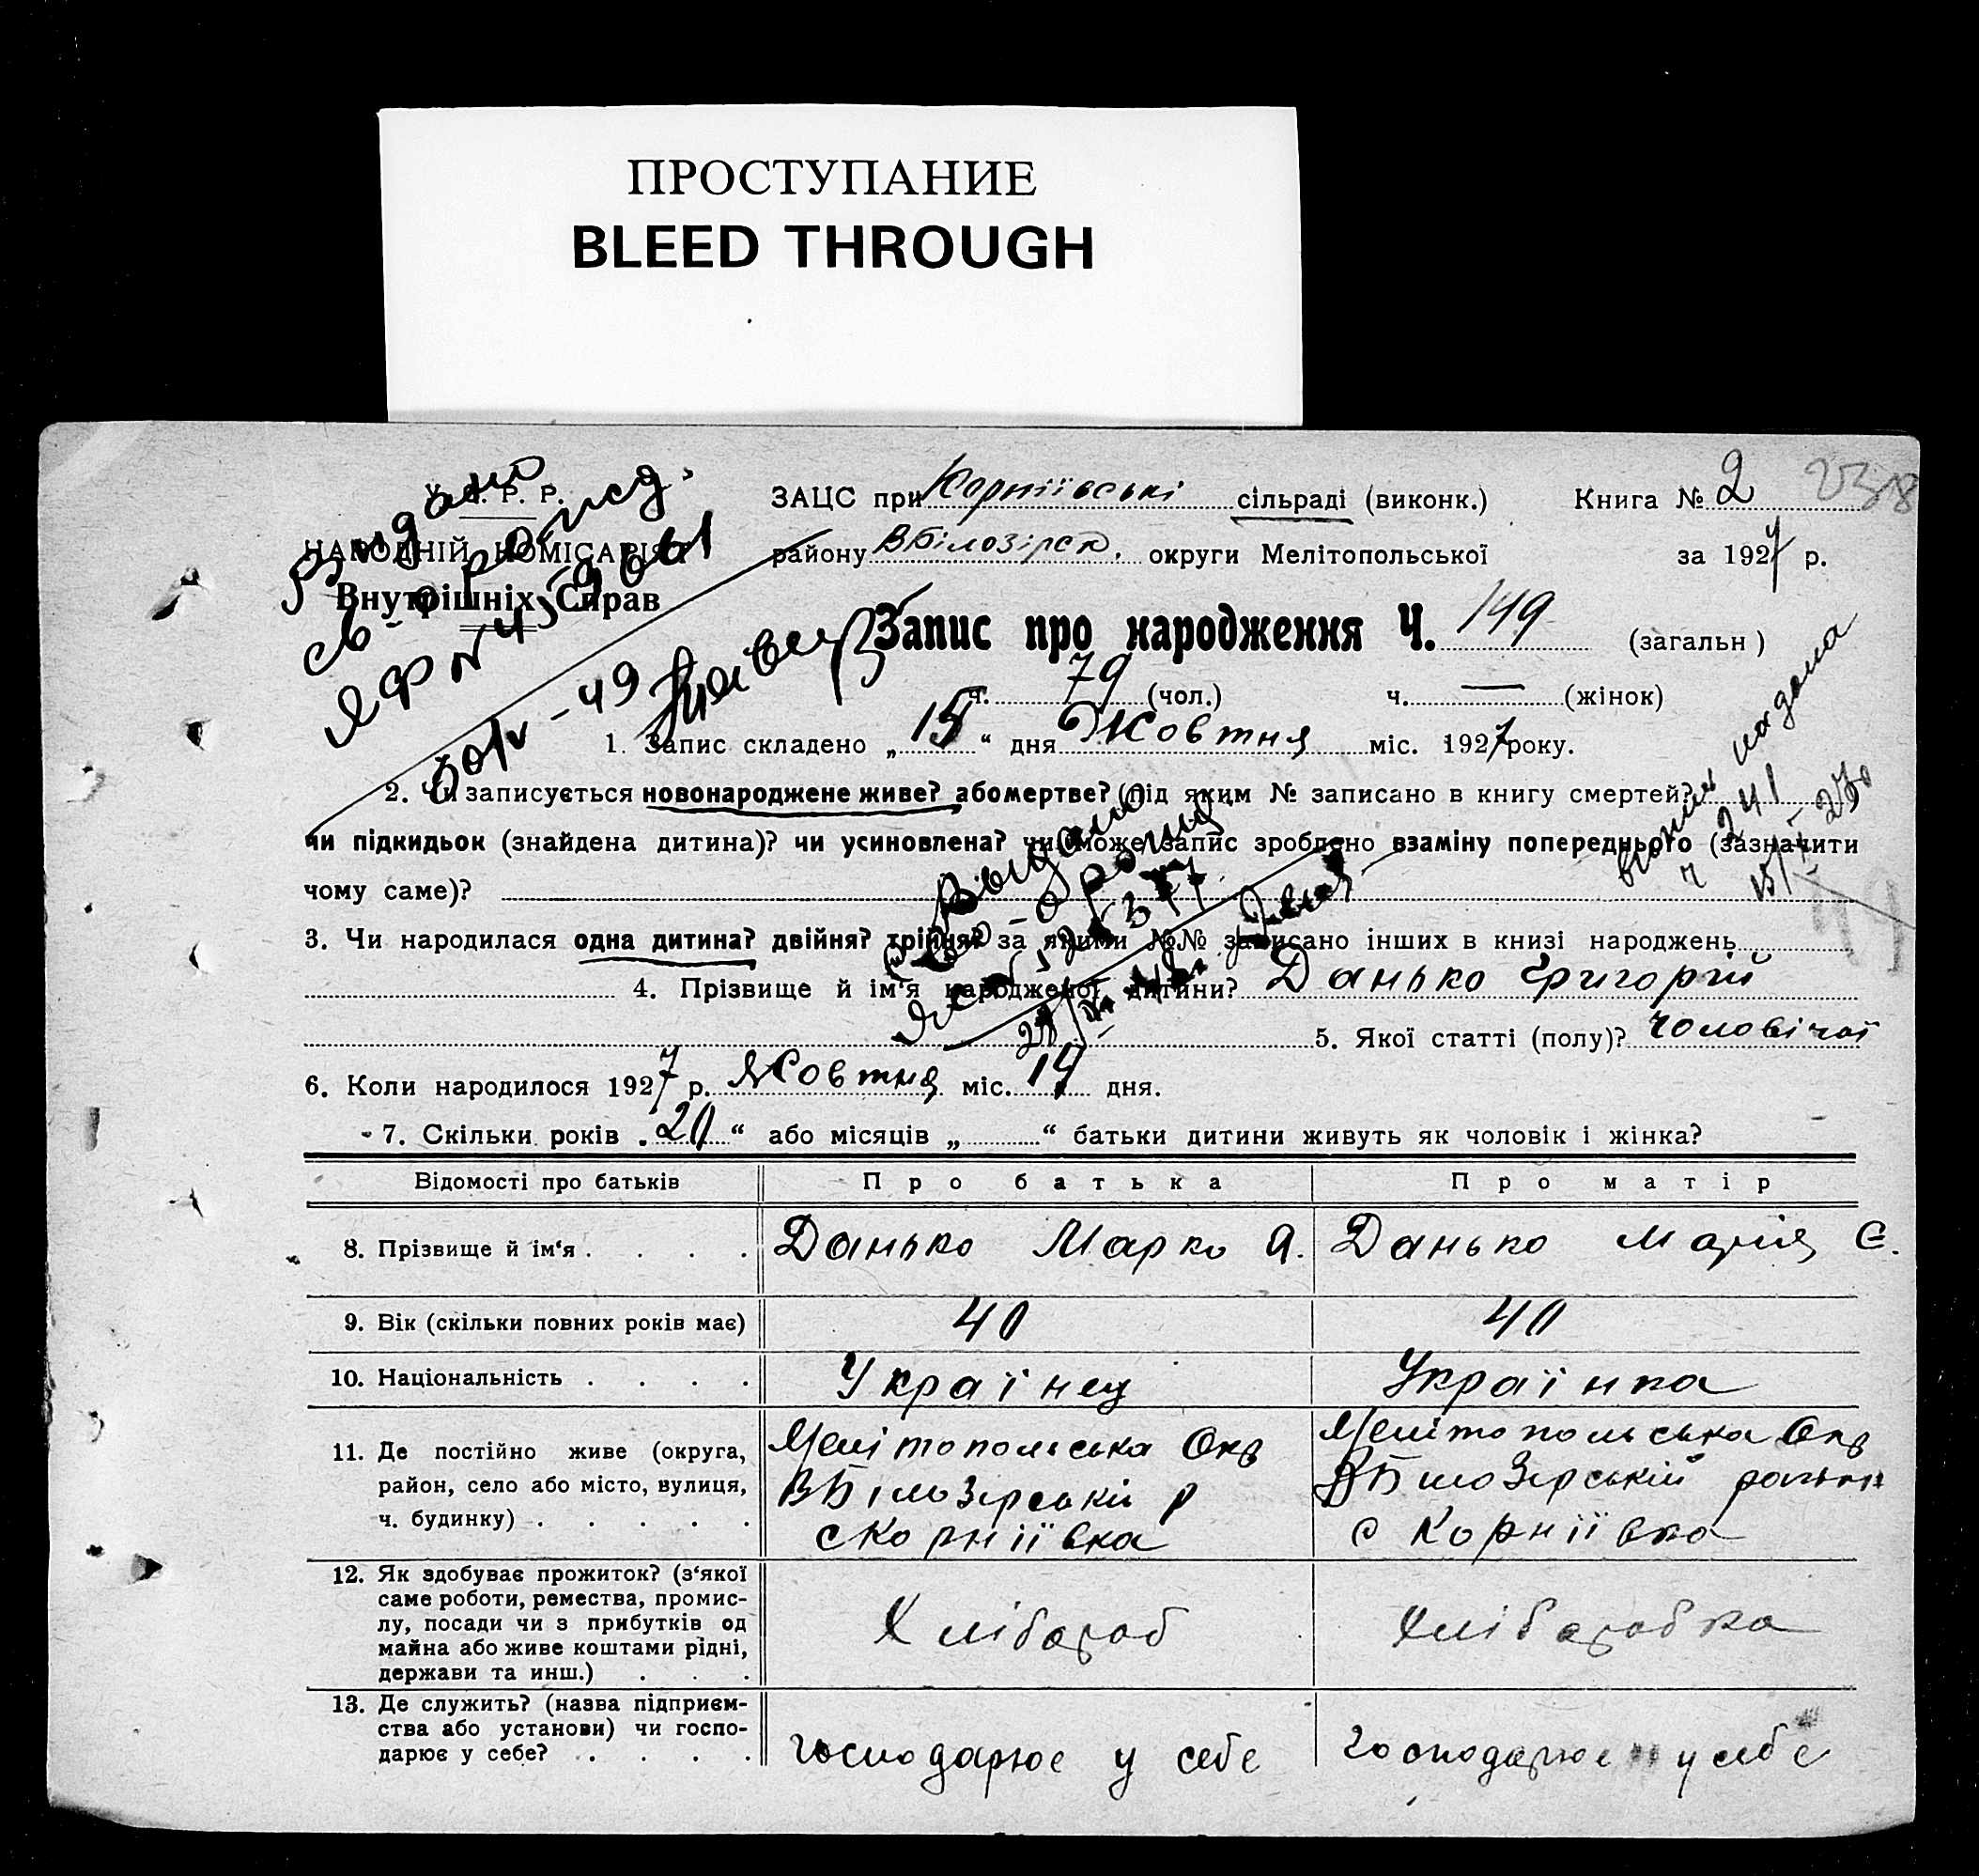 ПРОСТУПАНИЕ
BLEED THROUGH
У. С. Р. Р.
НАРОДНІЙ КОМІСАРІЯТ
Внутрішніх Справ
ЗАЦС при Корніївські сільраді (виконк.) Книга № 2
району ВБілозірск. округи Мелітопольської за 1927 р.
Запис про народження Ч. 149 (загальн)
ч. 79 (чол.) ч. — (жінок)
Видано
св-
ЯФ №
1. Запис складено „ 15 “ дня Жовтня міс. 1927 року.
2. Чи записується новонароджене живе? або мертве? (під яким № записано в книгу смертей?
чи підкидьок (знайдена дитина)? чи усиновлена? чи може запис зроблено взаміну попереднього (зазначити
чому саме)?
Выдано
3. Чи народилася одна дитина? двійня? трійня? за якими №№ записано інших в книзі народжень
4. Прізвище й ім‘я народженої дитини? Данько Григорій
5. Якої статті (полу)? чоловічої
6. Коли народилося 1927 р. Жовтня міс. 14 дня.
7. Скільки років „ 20 “ або місяців „ “ батьки дитини живуть як чоловік і жінка?
Відомості про батьків Про батька Про матір
8. Прізвище й ім‘я . . . . Данько Марко Я. Данько Марія Є.
9. Вік (скільки повних років має) 40 40
10. Національність . . . . Українець Українка
11. Де постійно живе (округа, Мелітопольська Окр Мелітопольська Окр
район, село або місто, вулиця, ВБілозірській р ВБілозірській район
ч. будинку) . . . . . с Корніївка с Корніївка
12. Як здобуває прожиток? (з‘якої
саме роботи, ремества, промис-
лу, посади чи з прибутків од Хлібороб Хліборобка
майна або живе коштами рідні,
держави та инш.) . . .
13. Де служить? (назва підприєм-
ства або установи) чи госпо-
дарює у себе? . . . . господарює у себе господарює у себе